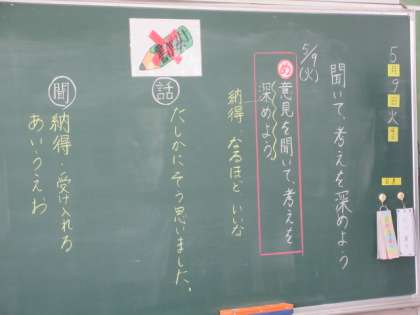 5月9日火
日直
聞いて、考えを深めよう
5/9(火)
め 意見を聞いて、考えを
深めよう
納得、なるほど いいな
話 たしかにそう思いました。
聞 納得、受け入れる
あいうえお